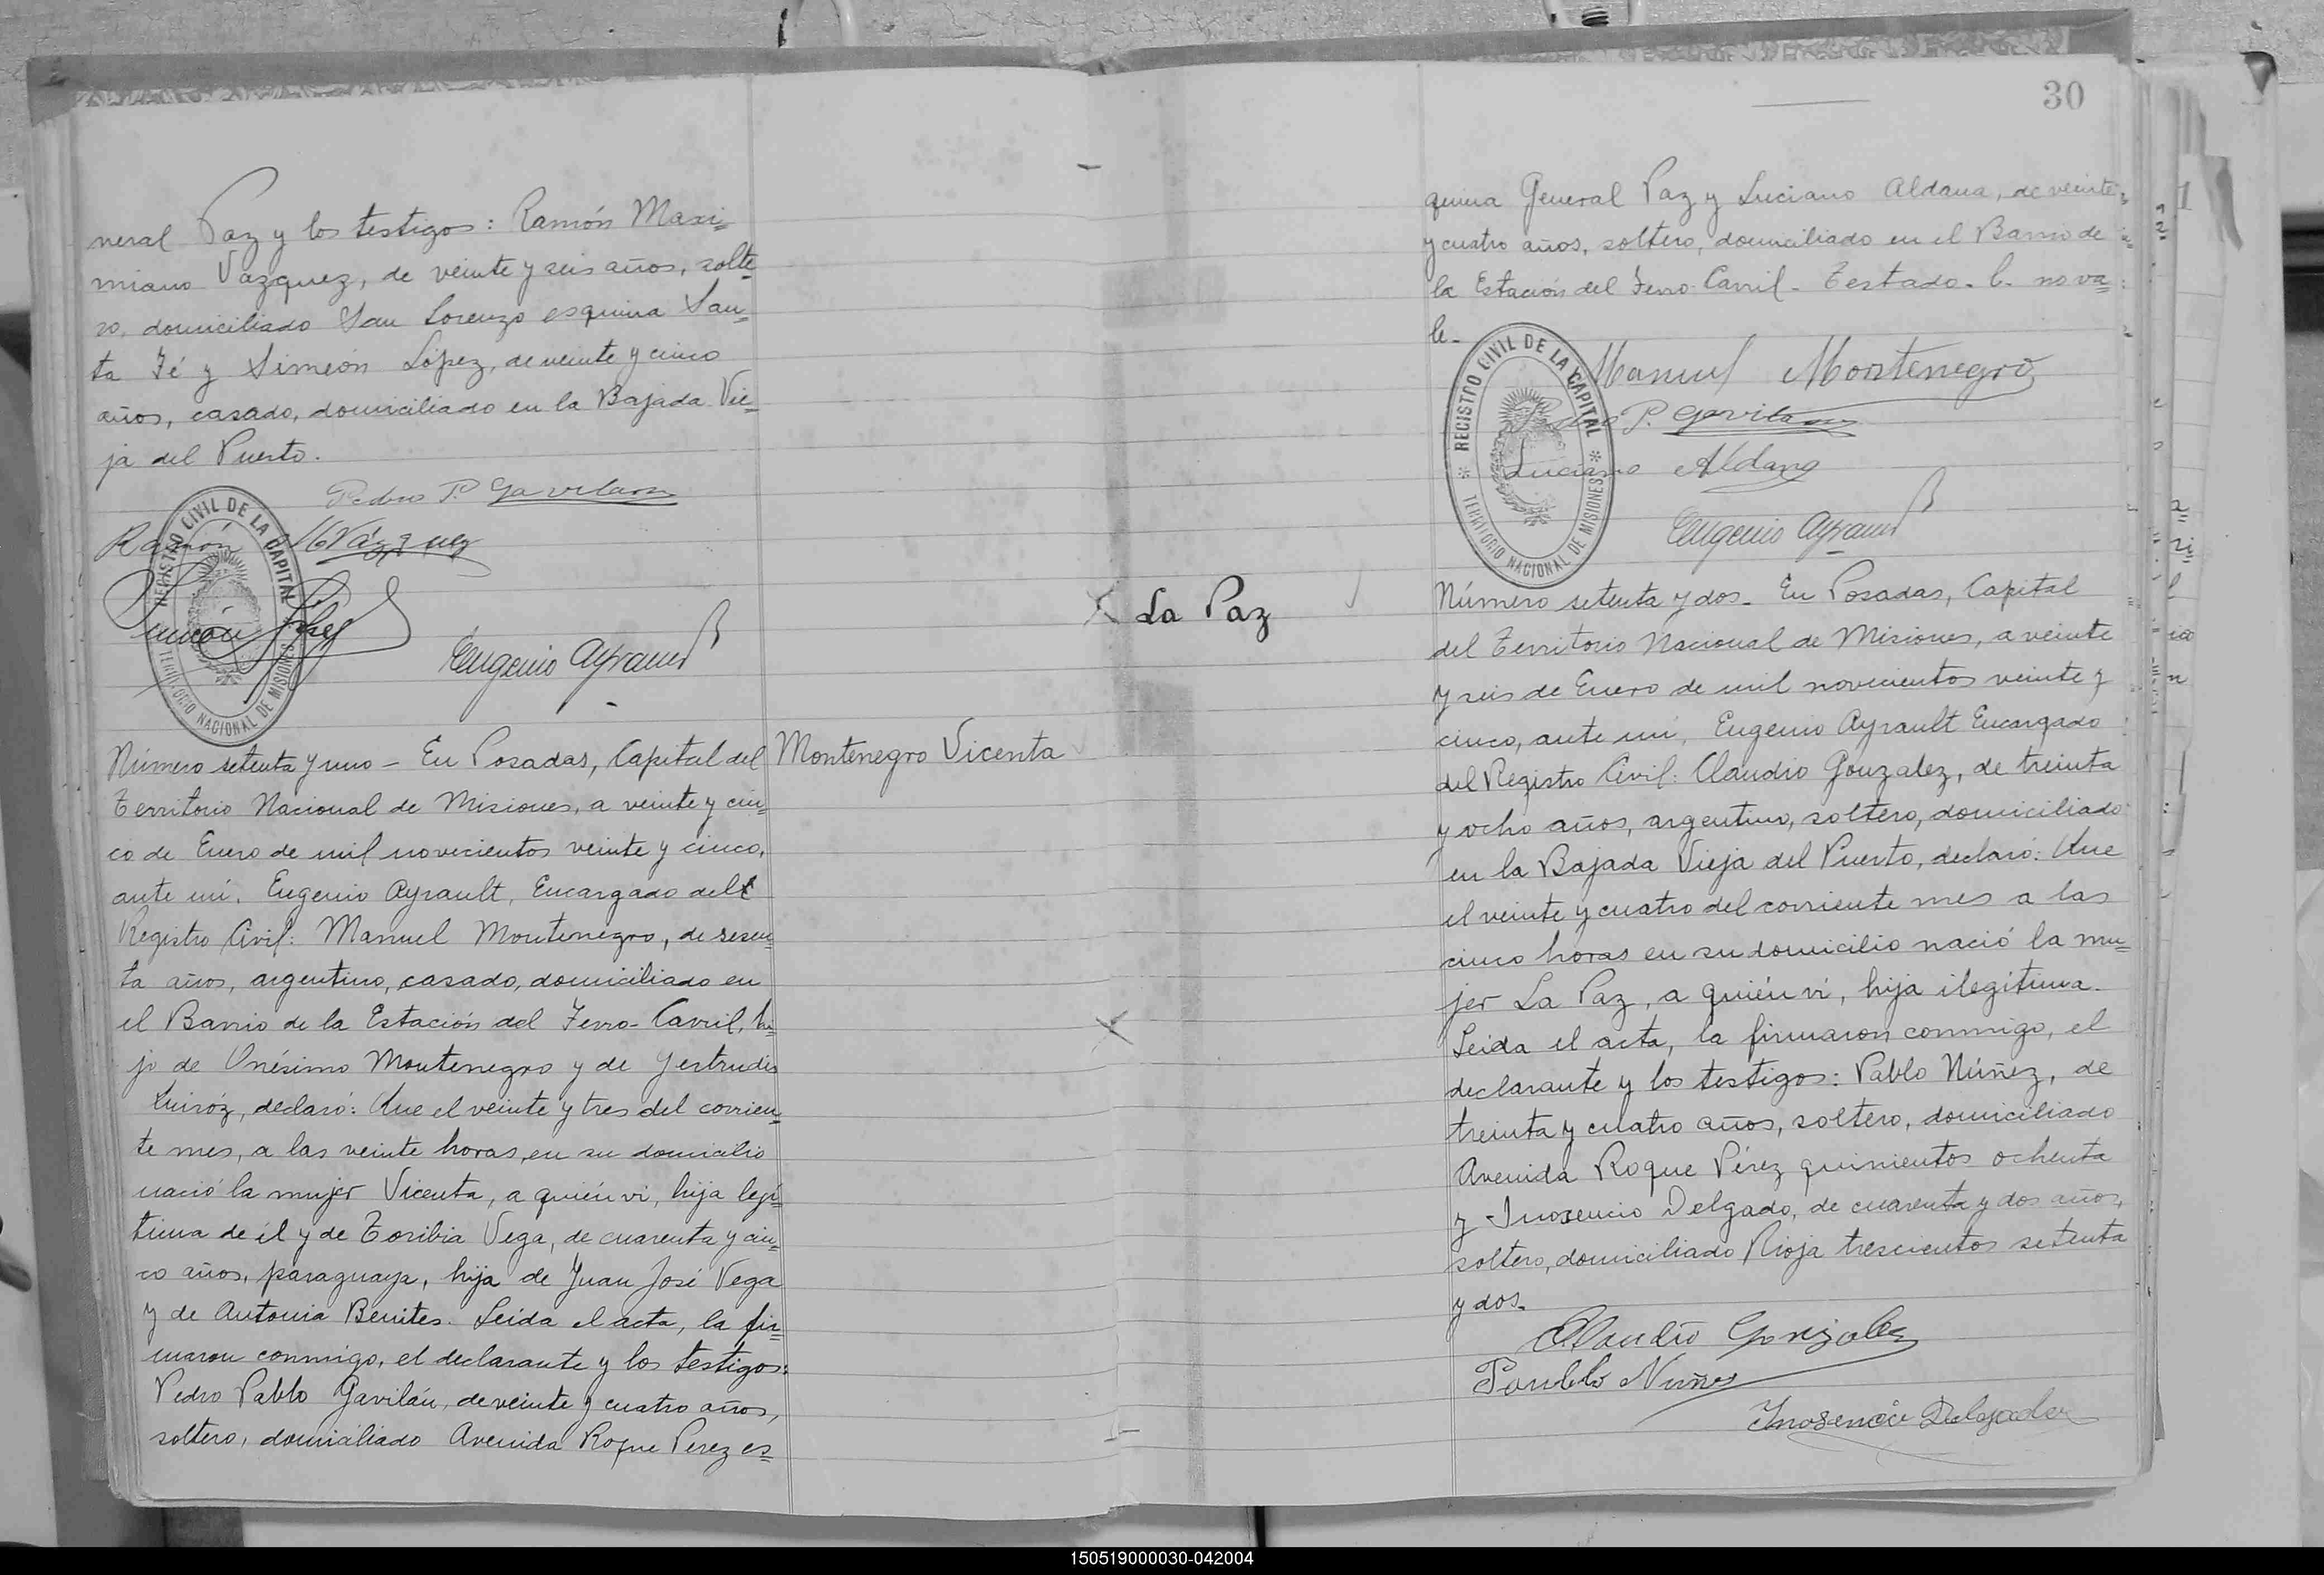 neral Paz y los testigos: Ramón Maxi=
miano Vazquez, de veinte y seis años, solte=
ro, domiciliado San Lorenzo esquina San=
ta Fé y Simeón López, de veinte y cinco
años, casado, domiciliado en la Bajada Vie=
ja del Puerto.
Pedro P. Gavilan
Ramón M Vázquez
REGISTRO CIVIL DE LA CAPITAL
TERRITORIO NACIONAL DE MISIONES
Simeón López
Eugenio Ayrault
Número setenta y uno - En Posadas, Capital del
Montenegro Vicenta
Territorio Nacional de Misiones, a veinte y cin=
co de Enero de mil novecientos veinte y cinco,
ante mí, Eugenio Ayrault, Encargado del
Registro Civil: Manuel Montenegro, de sesen=
ta años, argentino, casado, domiciliado en
el Barrio de la Estación del Ferro-Carril, hi=
jo de Onésimo Montenegro y de Gertrudis
Quiróz, declaró: Que el veinte y tres del corrien=
te mes, a las veinte horas, en su domicilio
nació la mujer Vicenta, a quién vi, hija legí=
tima de él y de Toribia Vega, de cuarenta y cin=
co años, paraguaya, hija de Juan José Vega
y de Antonia Benites. Leida el acta, la fir=
maron conmigo, el declarante y los testigos:
Pedro Pablo Gavilán, de veinte y cuatro años,
soltero, domiciliado Avenida Roque Perez es=
30
quina General Paz y Luciano Aldana, de veinte
y cuatro años, soltero, domiciliado en el Barrio de
la Estación del Ferro-Carril - Testado - l - no va=
le -
REGISTRO CIVIL DE LA CAPITAL
TERRITORIO NACIONAL DE MISIONES
Manuel Montenegro
Pedro P. Gavilan
Luciano Aldana
Eugenio Ayrault
La Paz
Número setenta y dos - En Posadas, Capital
del Territorio Nacional de Misiones, a veinte
y seis de Enero de mil novecientos veinte y
cinco, ante mí, Eugenio Ayrault Encargado
del Registro Civil: Claudio Gonzalez, de treinta
y ocho años, argentino, soltero, domiciliado
en la Bajada Vieja del Puerto, declaró: Que
el veinte y cuatro del corriente mes a las
cinco horas en su domicilio nació la mu=
jer La Paz, a quién vi, hija ilegítima.
Leida el acta, la firmaron conmigo, el
declarante y los testigos: Pablo Núñez, de
treinta y cuatro años, soltero, domiciliado
Avenida Roque Pérez quinientos ochenta
y Inosencio Delgado, de cuarenta y dos años,
soltero, domiciliado Rioja trescientos setenta
y dos.
Claudio Gonzalez
Pablo Nuñez
Inosencio Delgado
150519000030-042004